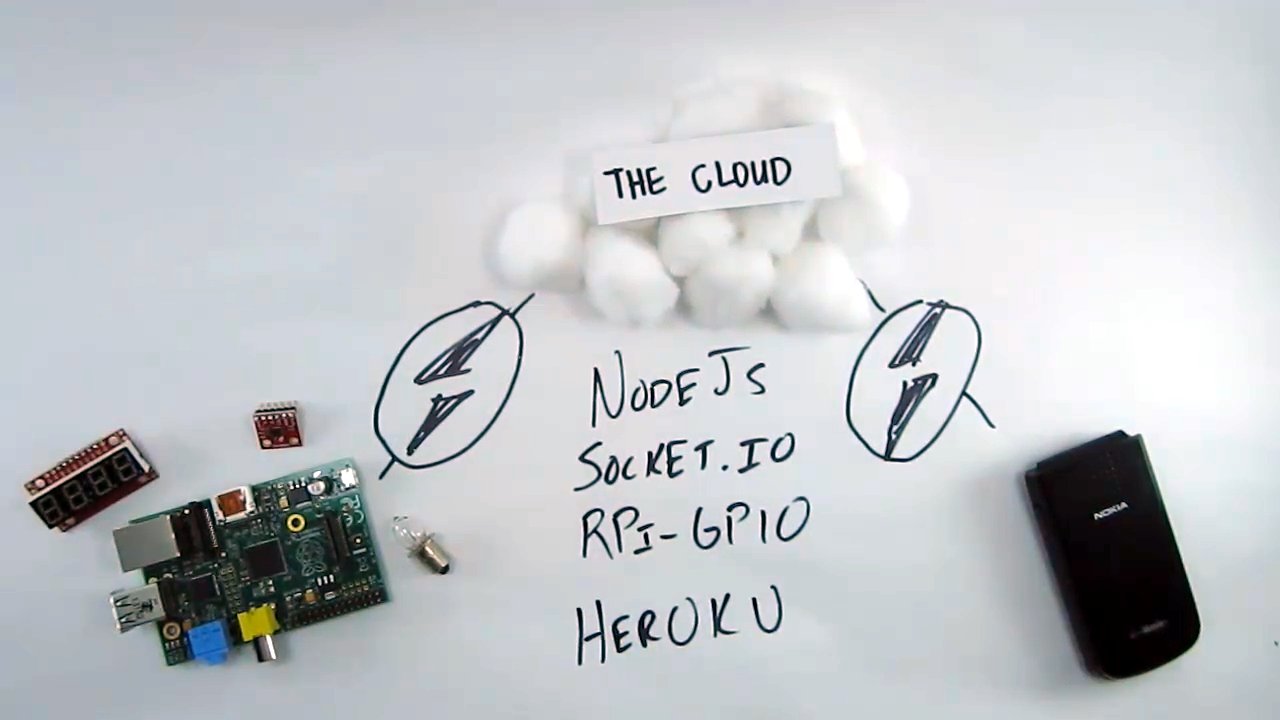 THE CLOUD
NODEJS
SOCKET.IO
RPI-GPIO
HEROKU
NOKIA